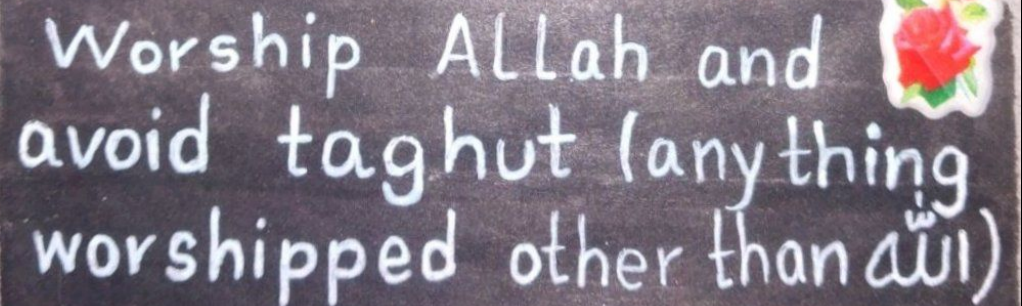 Worship Allah and
avoid taghut (anything
worshipped other than الله)